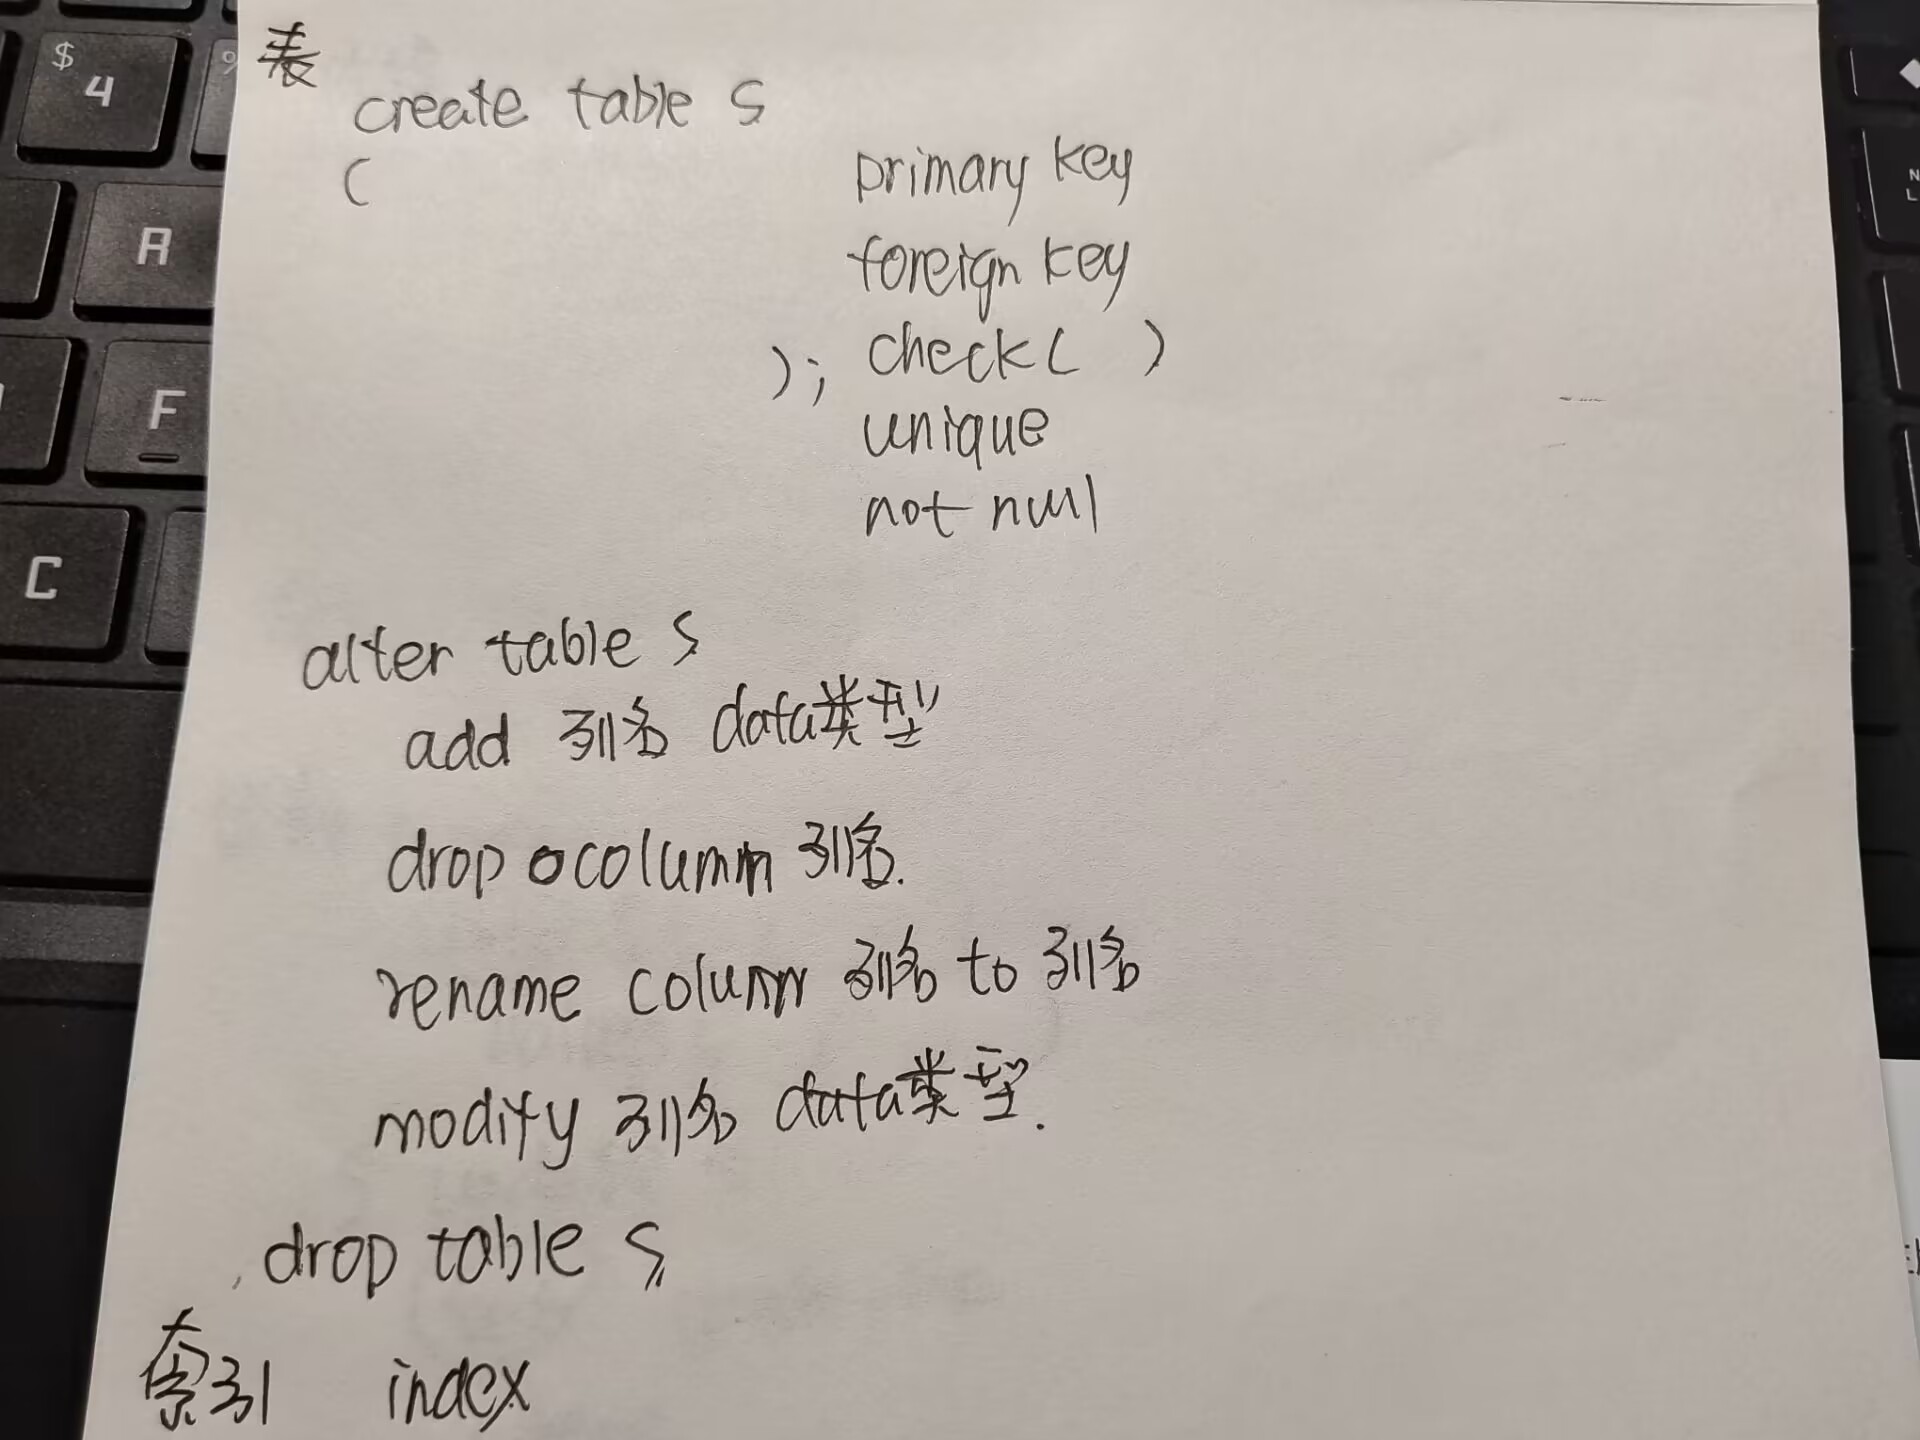 表
create table S
(
primary key
foreign key
); check( )
unique
not null
alter table S
add 列名 data类型
drop column 列名.
rename column 列名 to 列名
modify 列名 data类型.
drop table S
索引 index
$
4
%
R
F
C
N
L